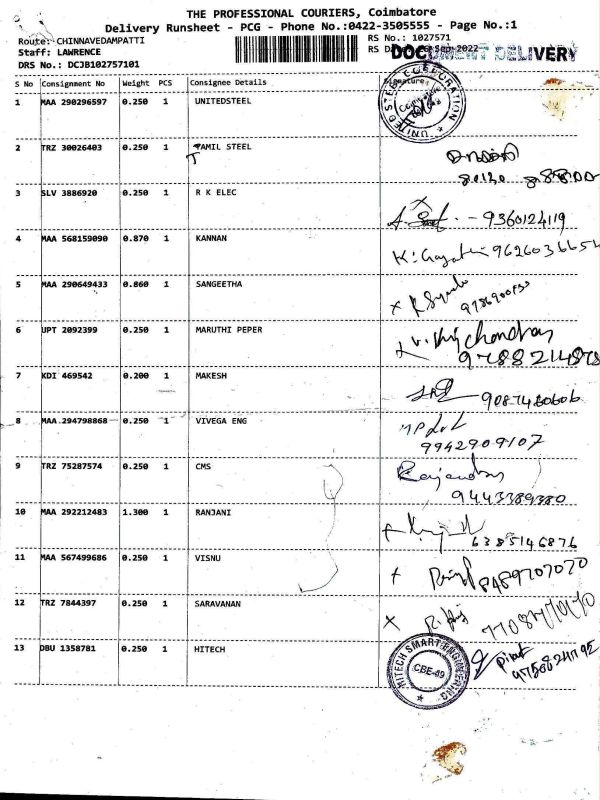 THE PROFESSIONAL COURIERS, Coimbatore
Delivery Runsheet - PCG - Phone No.:0422-3505555 - Page No.:1
Route: CHINNAVEDAMPATTI
RS No.: 1027571
Staff: LAWRENCE
RS Sep 2022
DOCUMENT DELIVERY
DRS No.: DCJB102757101
S No Consignment No Weight PCS Consignee Details Signature
1 MAA 290296597 0.250 1 UNITEDSTEEL
UNITED STEEL CORPORATION
2 TRZ 30026403 0.250 1 TAMIL STEEL
T
3 SLV 3886920 0.250 1 R K ELEC
9360124119
4 MAA 568159090 0.870 1 KANNAN
K. Gayathri
5 MAA 290649433 0.860 1 SANGEETHA
6 UPT 2092399 0.250 1 MARUTHI PEPER
7 KDI 469542 0.200 1 MAKESH
9087480606
8 MAA 294798868 0.250 1 VIVEGA ENG
9942909107
9 TRZ 75287574 0.250 1 CMS
9443389380
10 MAA 292212483 1.300 1 RANJANI
6385146876
11 MAA 567499686 0.250 1 VISNU
8489707070
12 TRZ 7844397 0.250 1 SARAVANAN
13 DBU 1358781 0.250 1 HITECH
HITECH SMART ENGINEERING
CBE-49